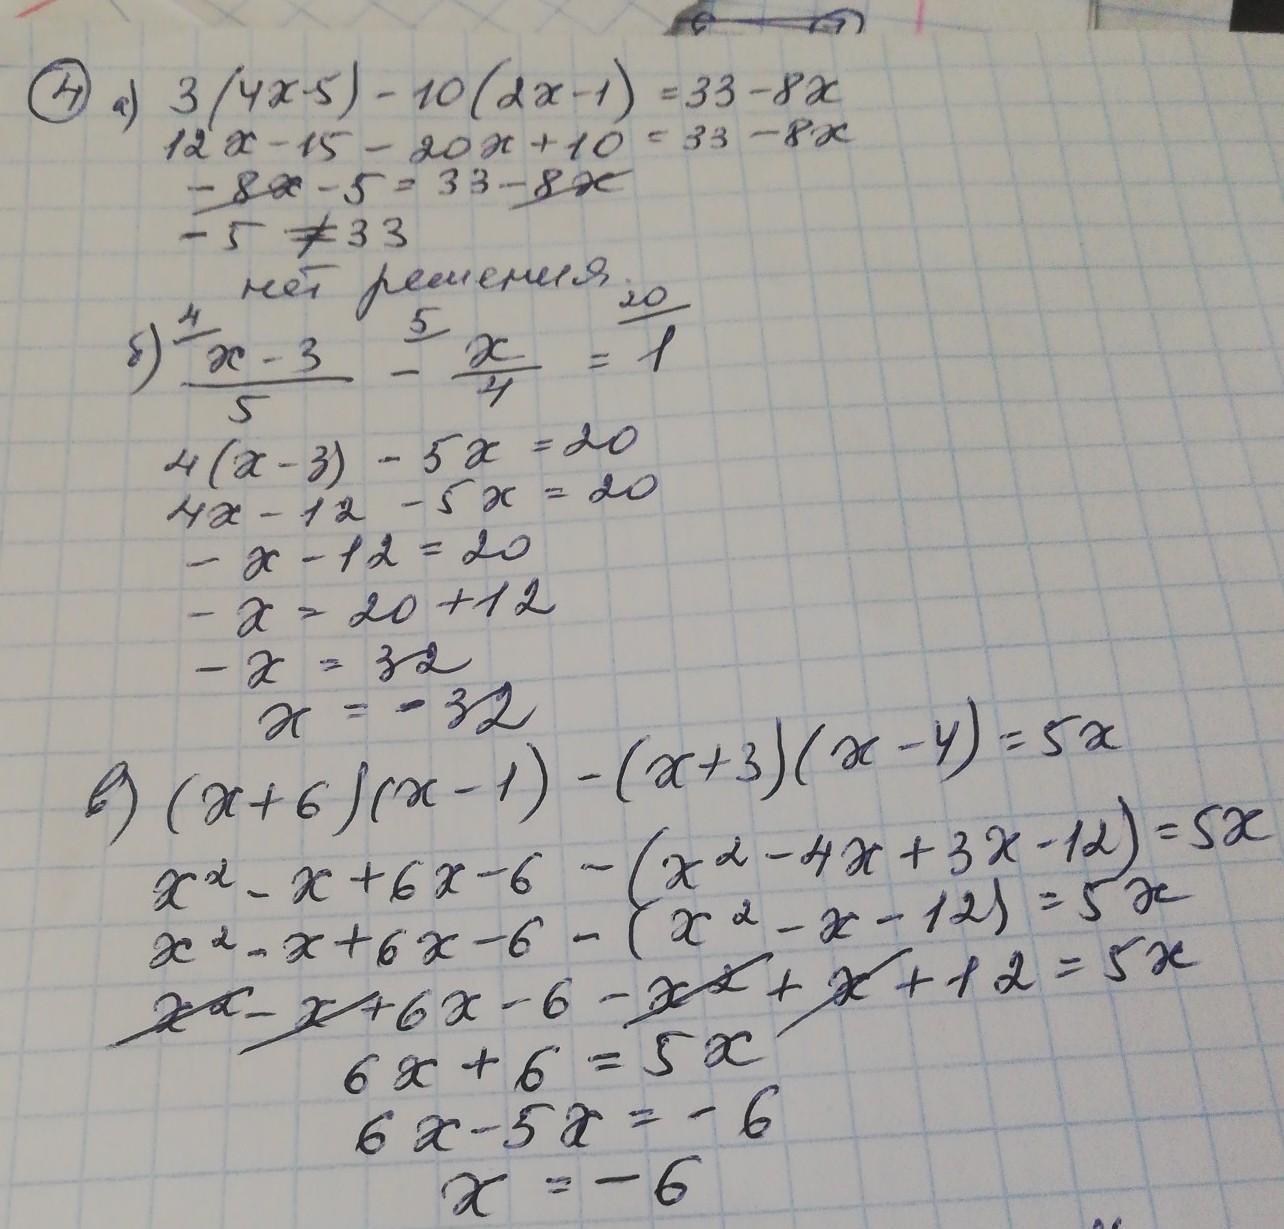 4 а) 3(4x-5) - 10(2x-1) = 33 - 8x
12x - 15 - 20x + 10 = 33 - 8x
-8x - 5 = 33 - 8x
-5 ≠ 33
нет решения.
4 5 20
б) x - 3 / 5 - x / 4 = 1
4(x - 3) - 5x = 20
4x - 12 - 5x = 20
- x - 12 = 20
- x = 20 + 12
- x = 32
x = -32
в) (x+6)(x-1) - (x+3)(x-4) = 5x
x² - x + 6x - 6 - (x² - 4x + 3x - 12) = 5x
x² - x + 6x - 6 - (x² - x - 12) = 5x
x² - x + 6x - 6 - x² + x + 12 = 5x
6x + 6 = 5x
6x - 5x = -6
x = -6